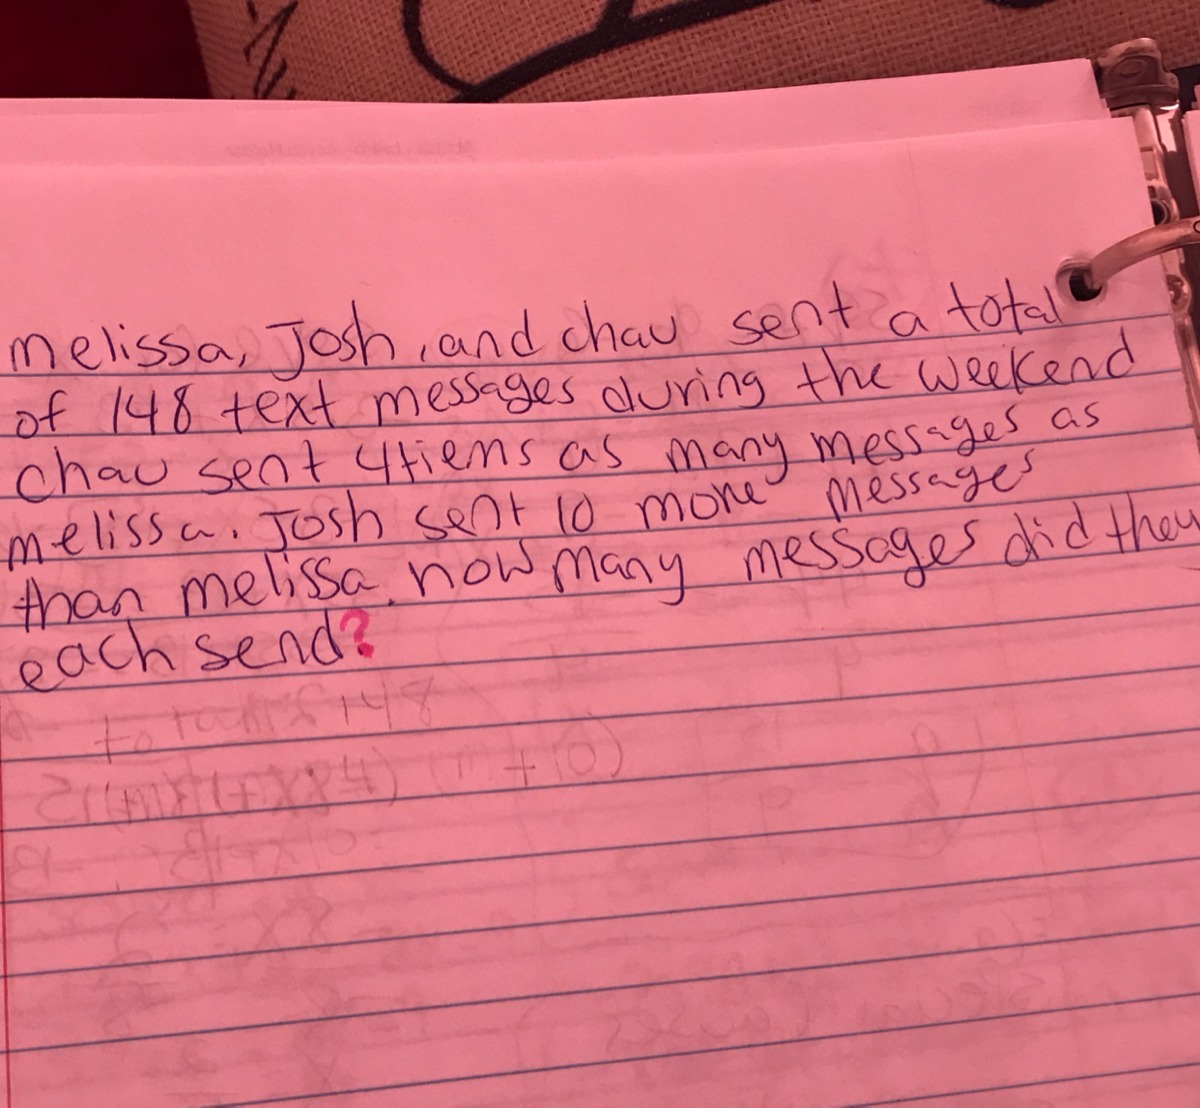 melissa, Josh, and chau sent a total
of 148 text messages during the weekend
chau sent 4tiems as many messages as
melissa. Josh sent 10 more messages
than melissa. how many messages did they
each send?